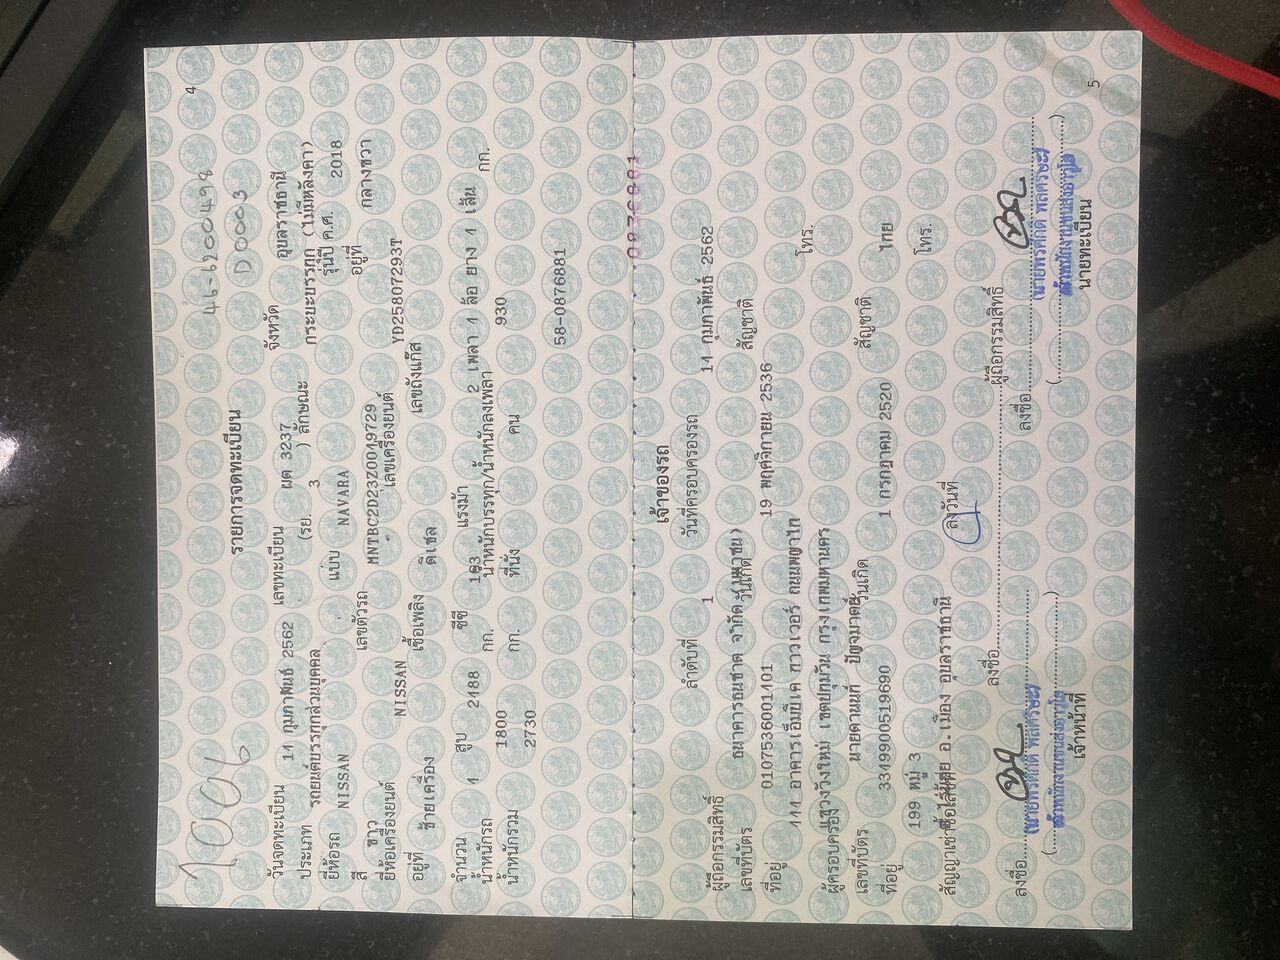 4
1006
46-6200498
D0003
รายการจดทะเบียน
วันจดทะเบียน 14 กุมภาพันธ์ 2562 เลขทะเบียน ผต 3237 จังหวัด อุบลราชธานี
ประเภท รถยนต์บรรทุกส่วนบุคคล (รย. 3 ) ลักษณะ กระบะบรรทุก (ไม่มีหลังคา)
ยี่ห้อรถ NISSAN แบบ NAVARA รุ่นปี ค.ศ. 2018
สี ขาว เลขตัวรถ MNTBC2D23Z0049729 อยู่ที่ กลางขวา
ยี่ห้อเครื่องยนต์ NISSAN เลขเครื่องยนต์ YD25807293T
อยู่ที่ ซ้ายเครื่อง เชื้อเพลิง ดีเซล เลขถังแก๊ส
จำนวน 4 สูบ 2488 ซีซี 163 แรงม้า 2 เพลา 4 ล้อ ยาง 4 เส้น
น้ำหนักรถ 1800 กก. น้ำหนักบรรทุก/น้ำหนักลงเพลา 930 กก.
น้ำหนักรวม 2730 กก. ที่นั่ง คน
58-0876881
0876881
เจ้าของรถ
ลำดับที่ 1 วันที่ครอบครองรถ 14 กุมภาพันธ์ 2562
ผู้ถือกรรมสิทธิ์ ธนาคารธนชาต จำกัด (มหาชน)
เลขที่บัตร 0107536001401 วันเกิด 19 พฤศจิกายน 2536 สัญชาติ
ที่อยู่ 444 อาคารเอ็มบีเค ทาวเวอร์ ถนนพญาไท
แขวงวังใหม่ เขตปทุมวัน กรุงเทพมหานคร โทร.
ผู้ครอบครอง นายดานนท์ ปัญจมาตย์
เลขที่บัตร 3349900519690 วันเกิด 1 กรกฎาคม 2520 สัญชาติ ไทย
ที่อยู่ 199 หมู่ 3 โทร.
ต.ไร่น้อย อ.เมือง อุบลราชธานี
สัญญาเช่าซื้อเลขที่ ลงวันที่
ลงชื่อ ผู้ถือกรรมสิทธิ์
ลงชื่อ ลงชื่อ
เจ้าหน้าที่ นายทะเบียน
5